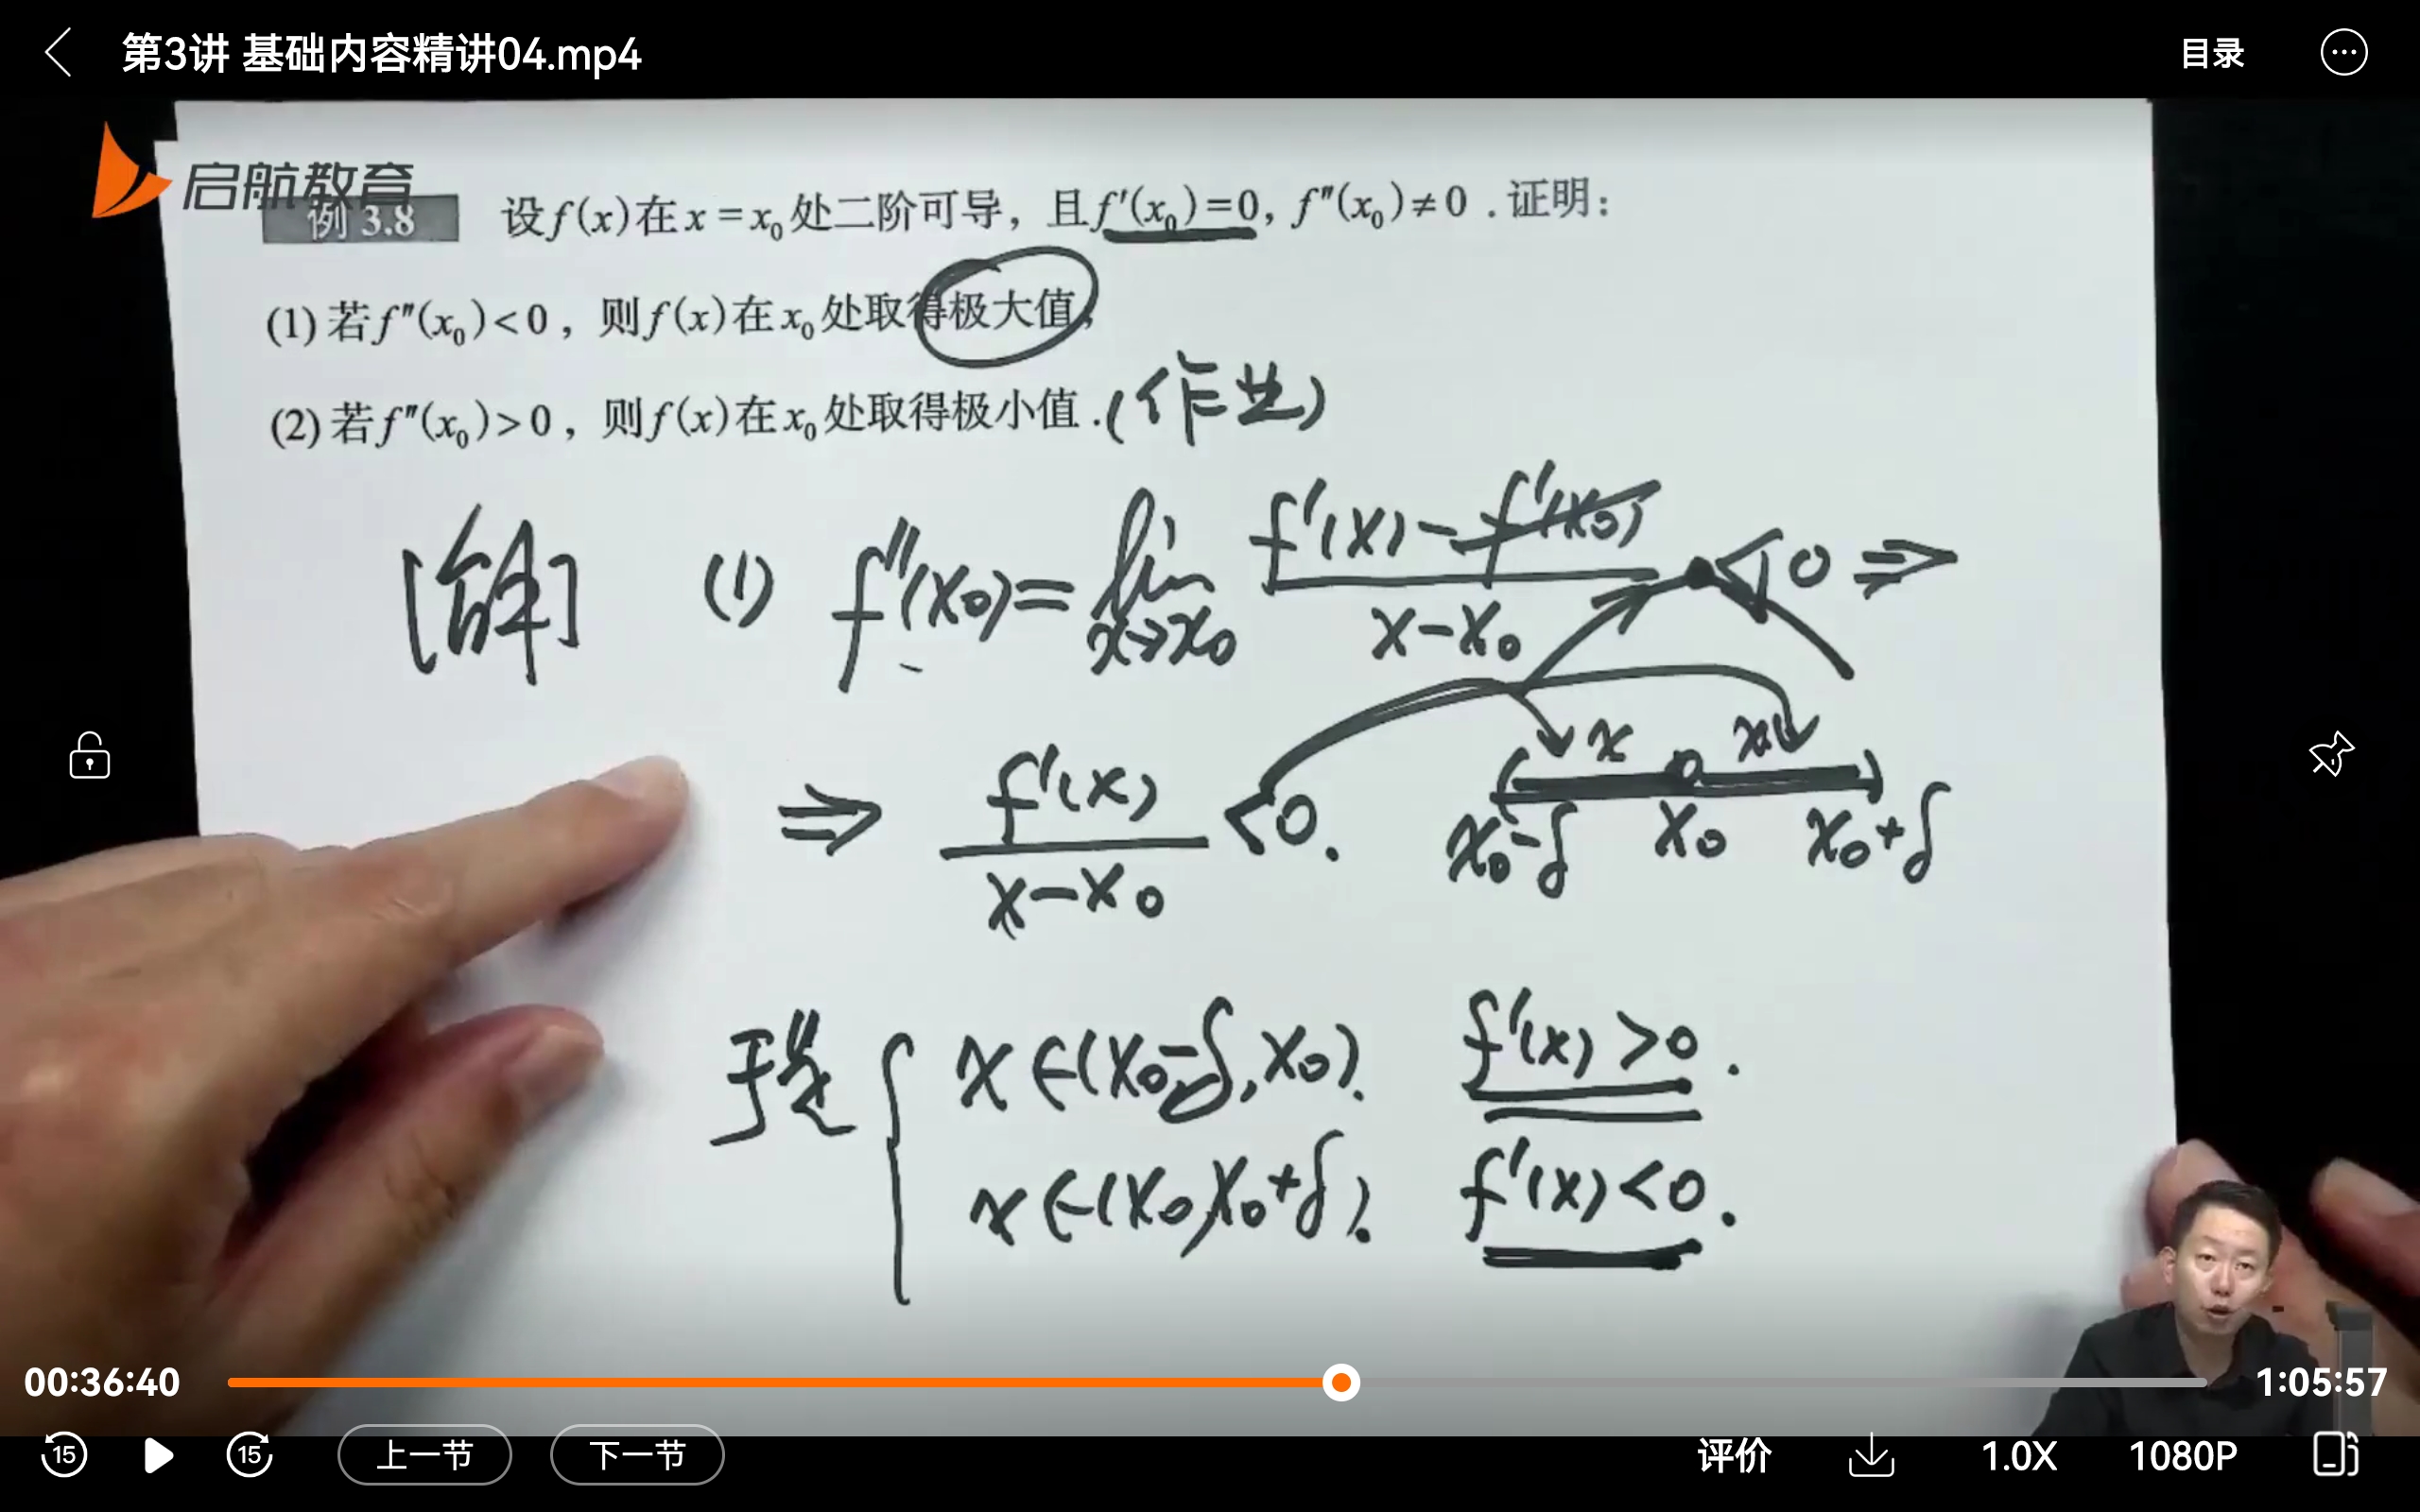 第3讲 基础内容精讲04.mp4
目录
启航教育
例 3.8 设f(x)在x=x₀处二阶可导，且f′(x₀)=0, f″(x₀)≠0 .证明：
(1) 若f″(x₀)<0，则f(x)在x₀处取得极大值；
(2) 若f″(x₀)>0，则f(x)在x₀处取得极小值.(作业)
[解] (1) f″(x₀)= lim x→x₀ f′(x)-f′(x₀) / x-x₀ <0 ⇒
⇒ f′(x) / x-x₀ <0.
x x
x₀-δ x₀ x₀+δ
于是 { x∈(x₀-δ,x₀). f′(x)>0.
x∈(x₀,x₀+δ). f′(x)<0.
00:36:40 1:05:57
15 15 上一节 下一节 评价 1.0X 1080P